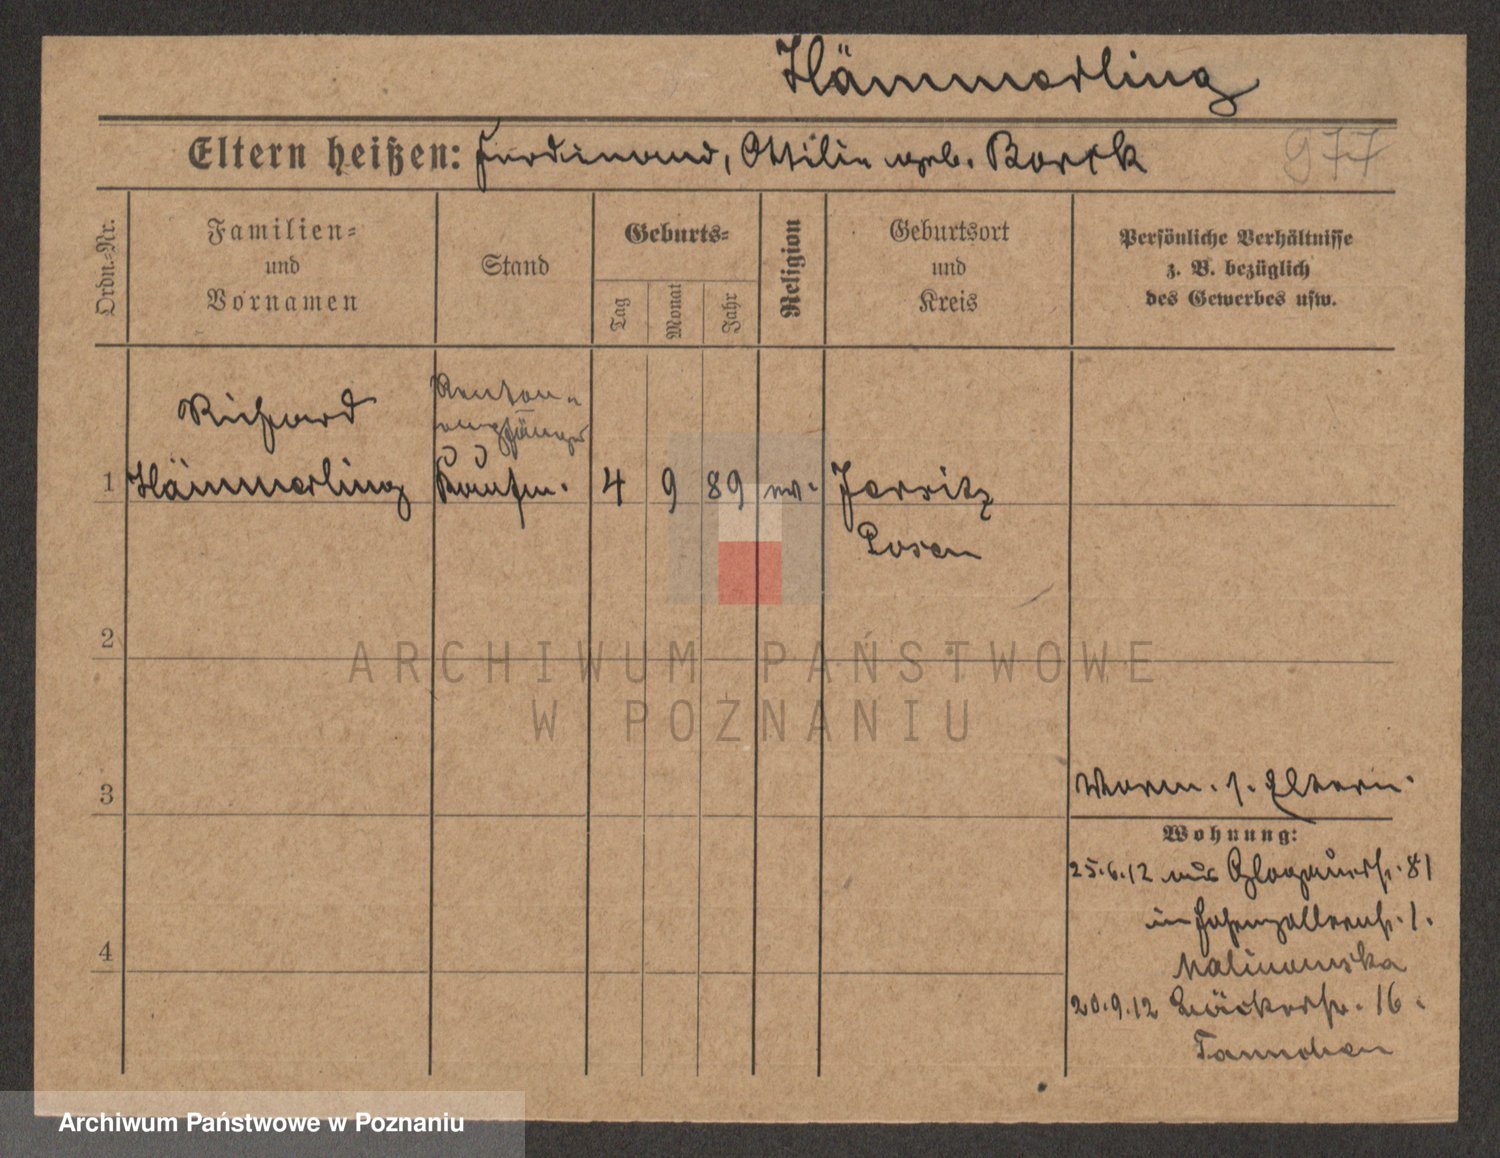 Hämmerling
Eltern heißen: Ferdinand, Ottilie geb. Borck
977
Ordn.-Nr.
Familien-
und
Vornamen
Stand
Geburts-
Tag
Monat
Jahr
Religion
Geburtsort
und
Kreis
Persönliche Verhältnisse
z. B. bezüglich
des Gewerbes usw.
Richard
Renten-
empfänger
1 Hämmerling Kaufm. 4 9 89 ev. Jersitz
Posen
2
3
4
Vorm. s. Eltern.
Wohnung:
25.6.12 aus Glogauerstr. 81
in Hohenzollernstr. 1.
Malinowska
20.9.12 Bäckerstr. 16.
ARCHIWUM PAŃSTWOWE
W POZNANIU
Archiwum Państwowe w Poznaniu